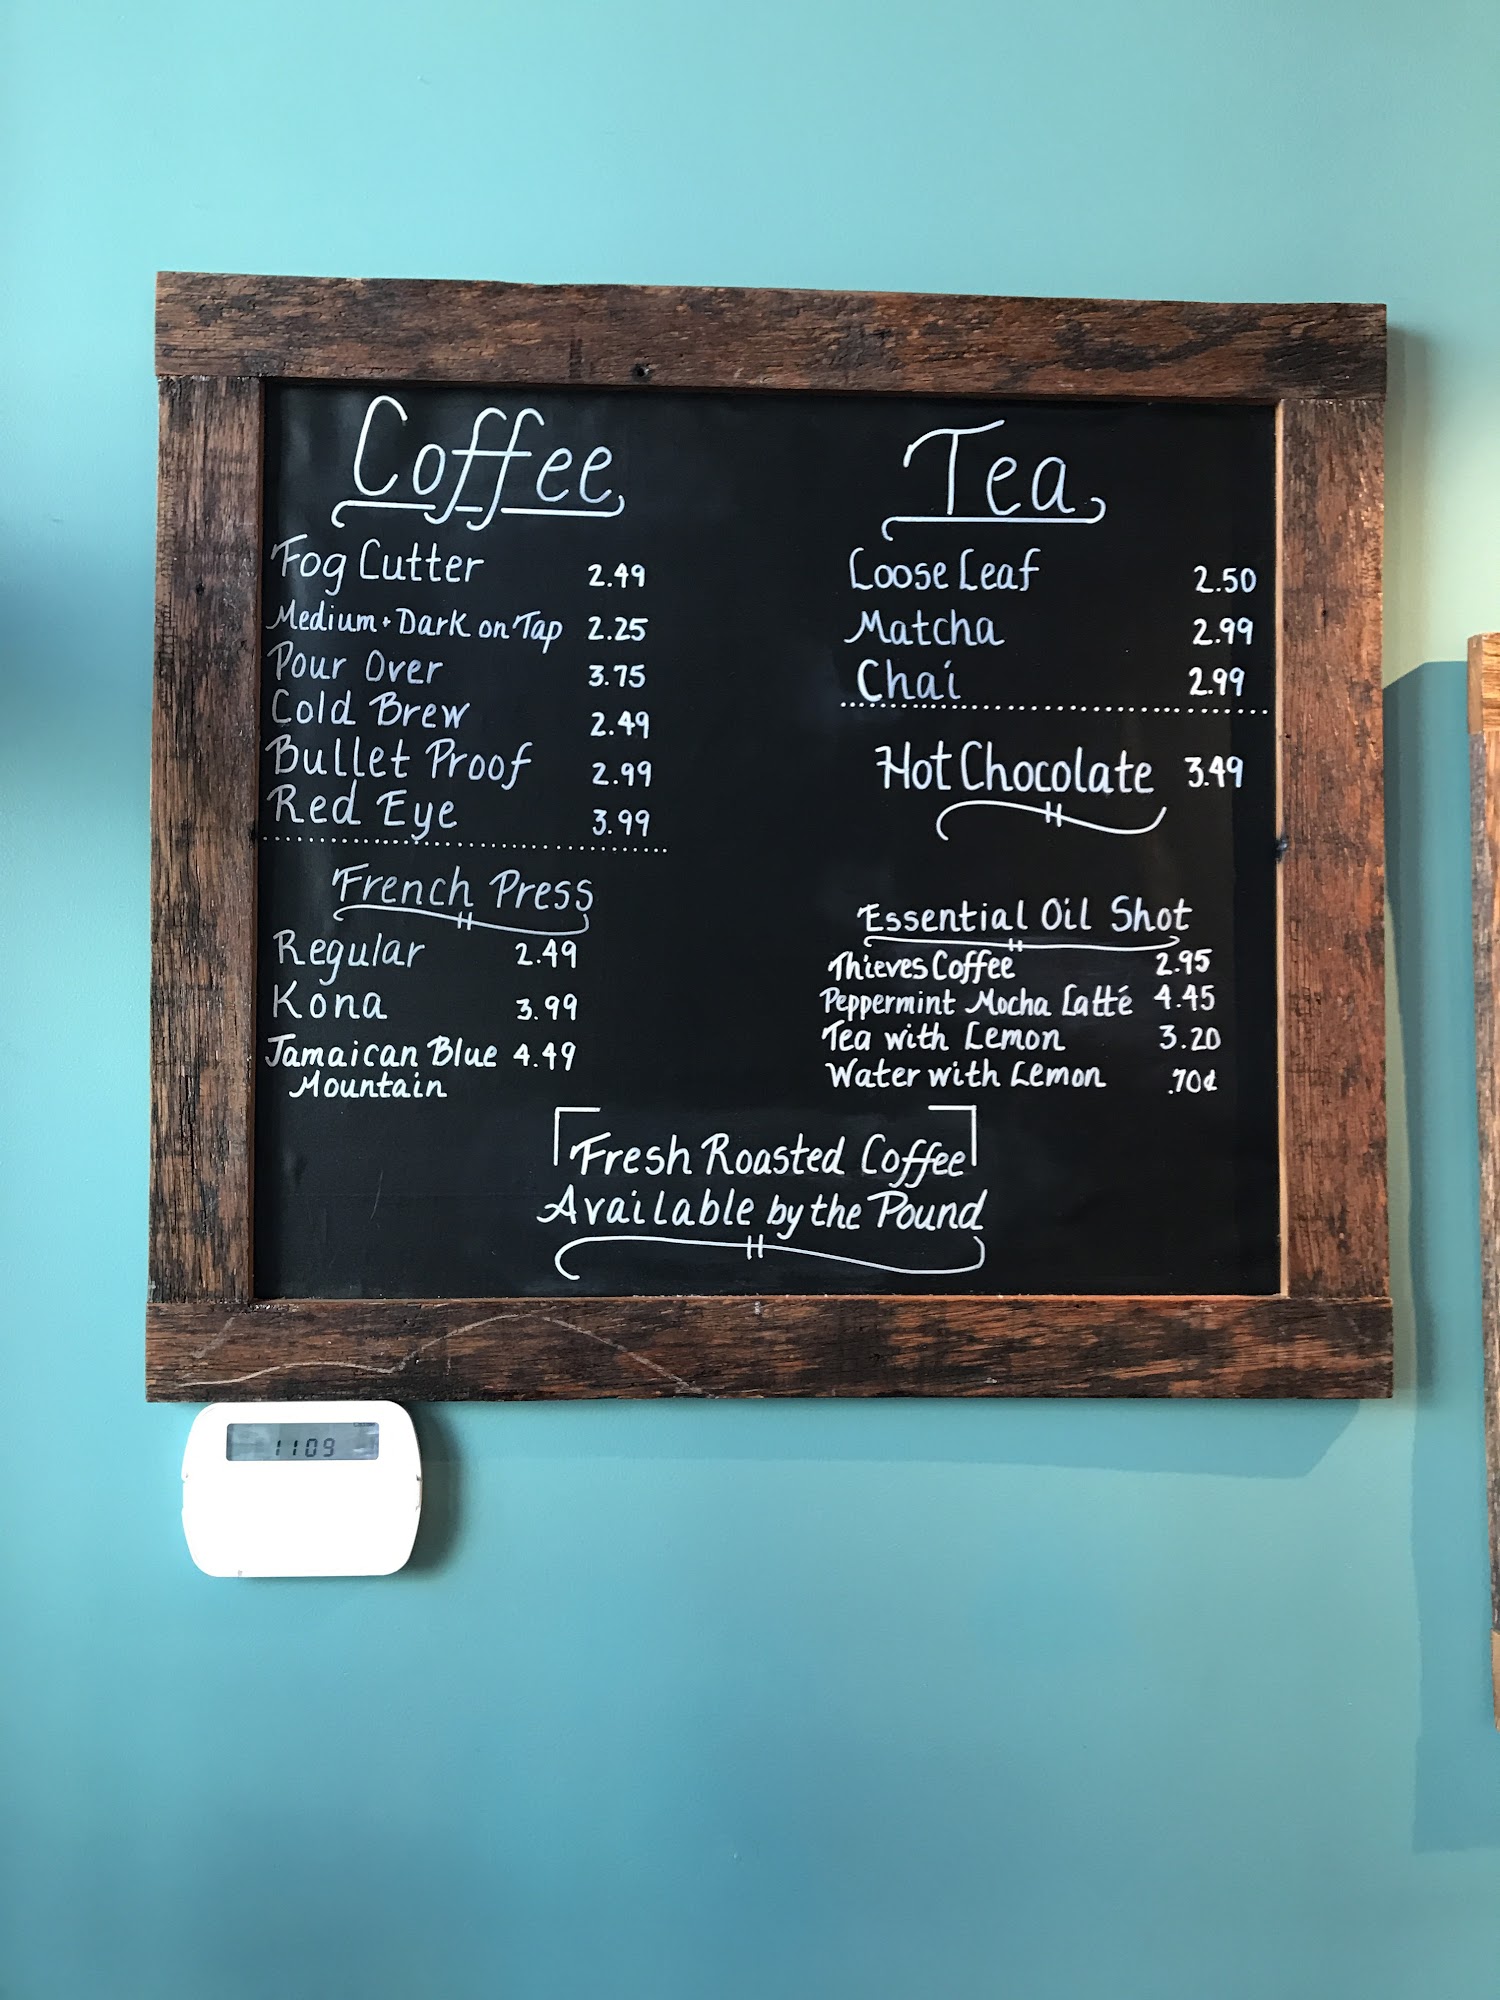 Coffee
Fog Cutter 2.49
Medium + Dark on Tap 2.25
Pour Over 3.75
Cold Brew 2.49
Bullet Proof 2.99
Red Eye 3.99
French Press
Regular 2.49
Kona 3.99
Jamaican Blue 4.49
Mountain
Tea
Loose Leaf 2.50
Matcha 2.99
Chai 2.99
Hot Chocolate 3.49
Essential Oil Shot
Thieves Coffee 2.95
Peppermint Mocha Latté 4.45
Tea with Lemon 3.20
Water with Lemon .70¢
Fresh Roasted Coffee
Available by the Pound
1109